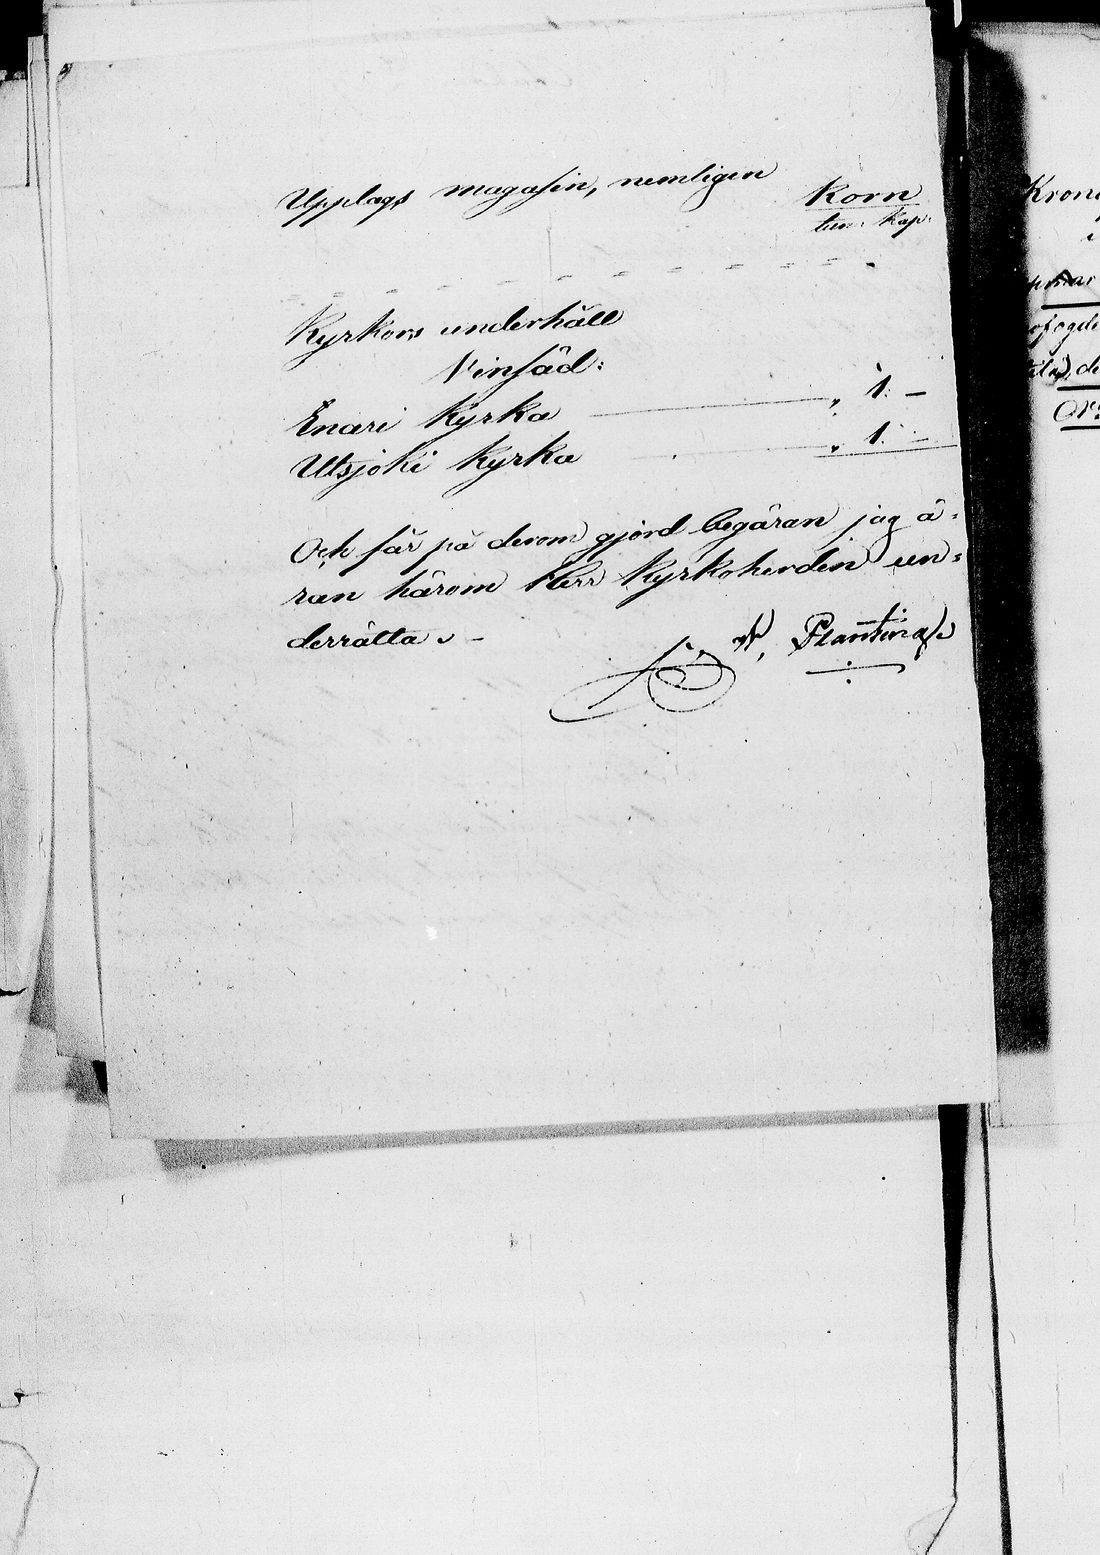 Upplags magasin, nemligen
Korn
tun: kap:
= = = = = = = = = =
Kyrkors underhåll
Vinsäd:
Enari Kyrka „ 1. –
Utsjoki Kyrka „ 1. –
Och får på derom gjord begäran jag ä-
ran härom Herr Kyrkoherden un-
derrätta. –
N. Plantin
Kron
Ors